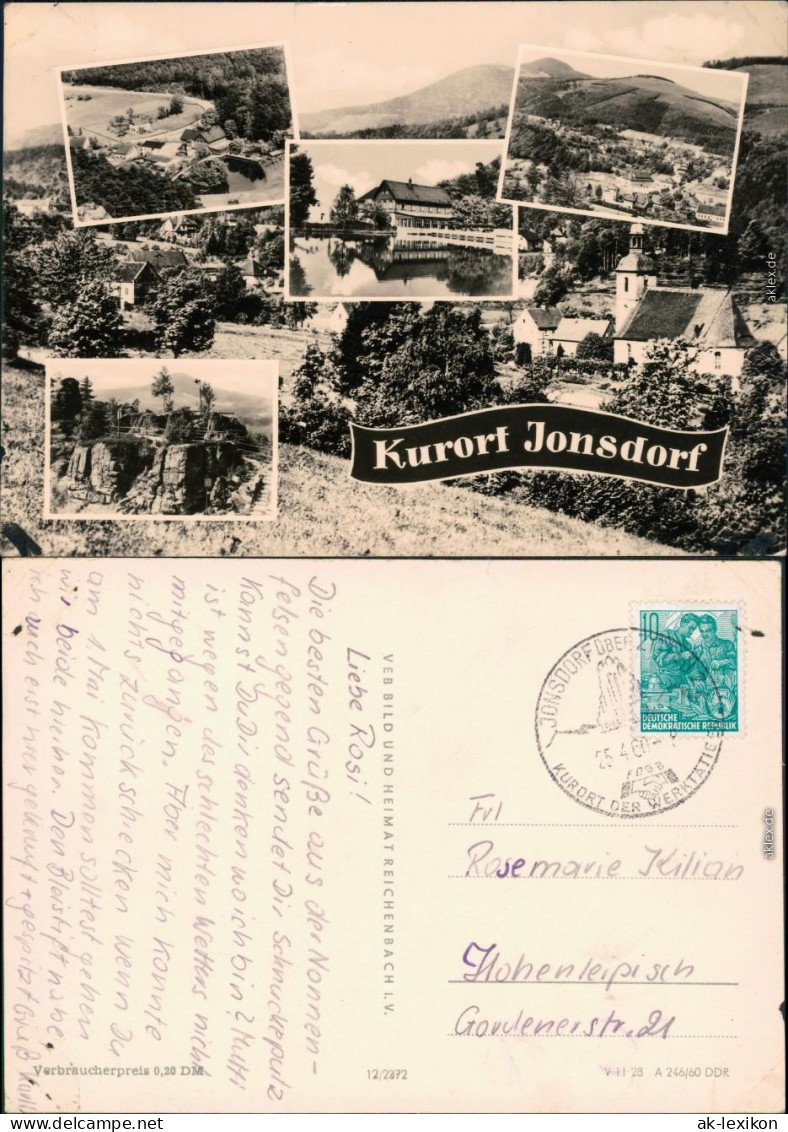 Kurort Jonsdorf
Liebe Rosi!
Die besten Grüße aus der Nonnen-
felsengegend sendet Dir Schnuckeputz
Kannst Du Dir denken wo ich bin? Mutti
ist wegen des schlechten Wetters nicht
mitgegangen. Aber mich konnte
nichts zurückschrecken. Wenn Du
am 1. Mai kommen solltest gehen
wir beide hierher. Den Bleistift habe
ich auch erst hier gekauft + gespitzt Gruß
Verbraucherpreis 0,20 DM
VEB BILD UND HEIMAT REICHENBACH I. V.
12/2372
10
DEUTSCHE
DEMOKRATISCHE REPUBLIK
JONSDORF ÜBER
25.4.60
FDGB
KURORT DER WERKTÄTIGEN
Frl
Rosemarie Kilian
Hohenleipisch
Gordenerstr. 21
V 11 28 A 246/60 DDR
aklex.de
aklex.de
ak-lexikon